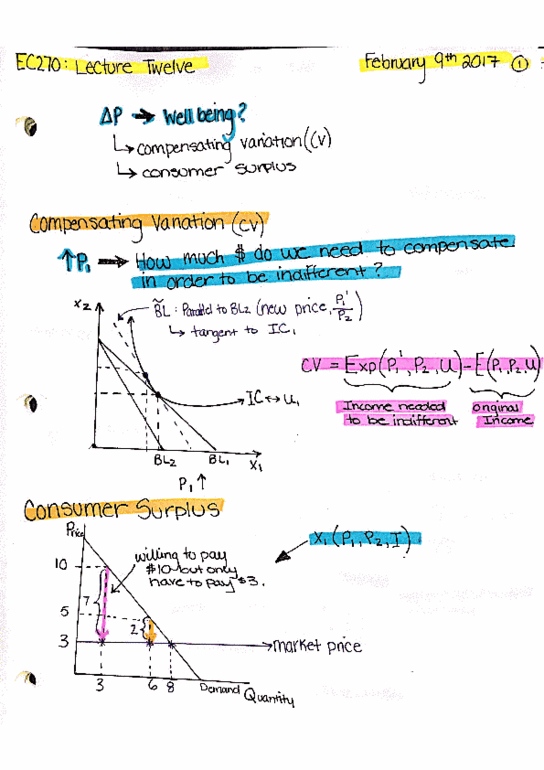 EC270: Lecture Twelve February 9th 2017 ①
ΔP → Well being?
↳ compensating variation (CV)
↳ consumer surplus
Compensating Variation (CV)
↑P₁ → How much $ do we need to compensate
in order to be indifferent?
X₂
B̃L : Parallel to BL₂ (new price, P₁'/P₂)
↳ tangent to IC₁
CV = Exp(P₁', P₂, U) - E(P₁, P₂, U)
Income needed
to be indifferent
original
Income
IC ↔ U₁
BL₂ BL₁ X₁
P₁ ↑
Consumer Surplus
Price
X₁(P₁, P₂, I)
willing to pay
$10 but only
have to pay $3.
10
7
5
2
3
→ market price
3 6 8 Demand Quantity